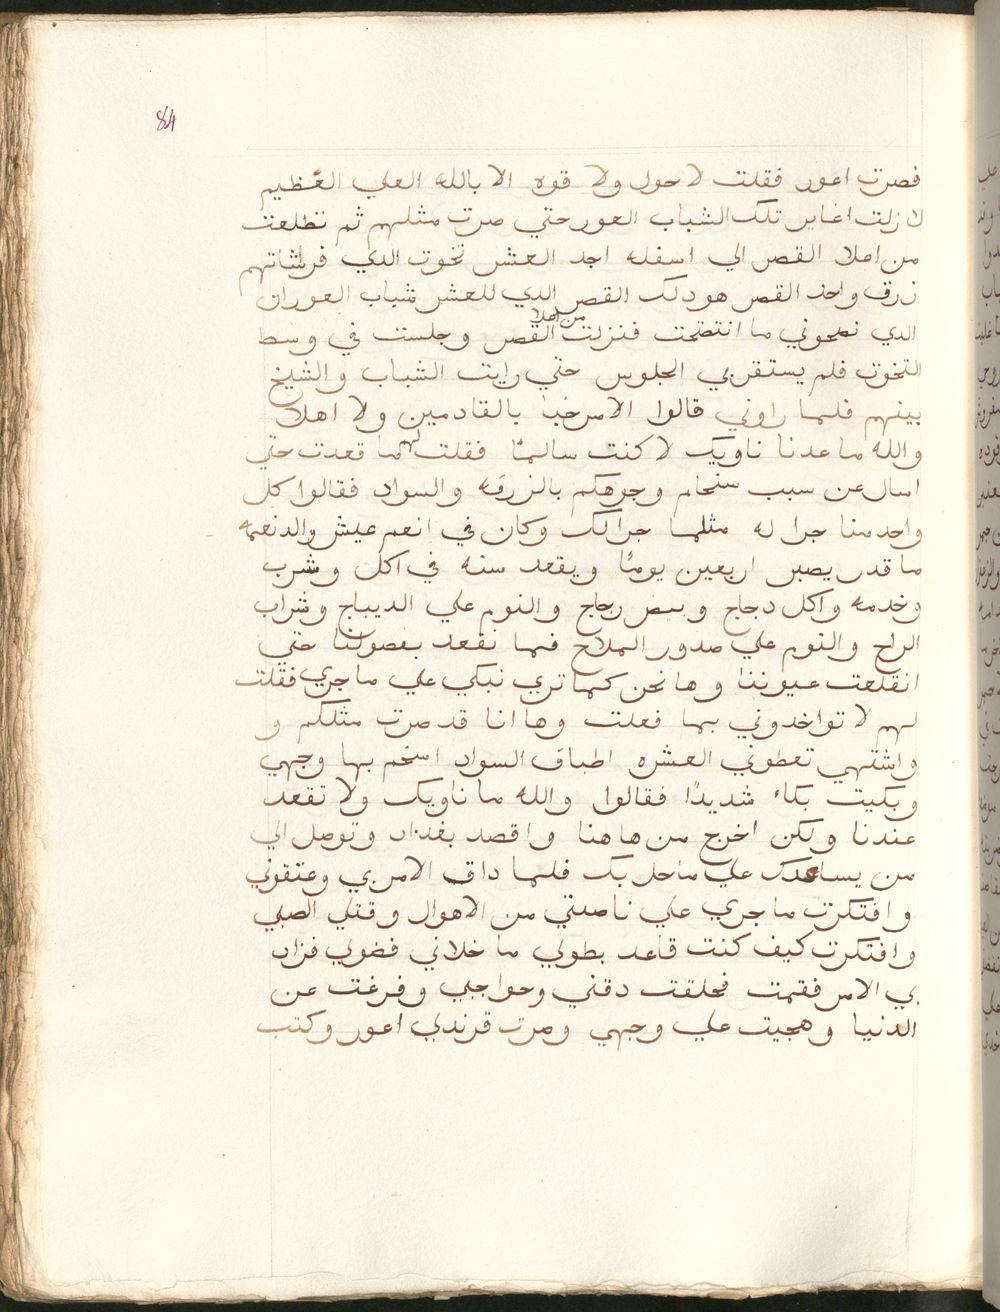 84
فصرت اعور فقلت لا حول ولا قوه الا بالله العلي العظيم
لا زلت اعاير تلك الشباب العور حتي صرت مثلهم ثم تطلعت
من اعلا القصر الي اسفله اجد العشر تخوت الدي فرشاتهم
زرق واجد القصر هو دلك القصر الدي للعشر شباب العوران
الدي نصحوني ما انتصحت فنزلت من اعلا القصر وجلست في وسط
التخوت فلم يستقر بي الجلوس حتي رايت الشباب والشيخ
بينهم فلما راوني قالوا لا مرحبا بالقادمين ولا اهلا
والله ما عدنا ناويك لا كنت سالمًا فقلت لهم ما قعدت حتي
اسال عن سبب سخام وجوهكم بالزرقه والسواد فقالوا كل
واحد منا جرا له مثلما جرالك وكان في انعم عيش والد نعمه
ما قدر يصبر اربعين يومًا ويقعد سنه في اكل وشرب
وخدمه واكل دجاج وبيض زجاج والنوم علي الديباج وشراب
الراح والنوم علي صدور الملاح فما نقعد بفضولنا حتي
انقلعت عيوننا وها نحن كما تري نبكي علي ما جري فقلت
لهم لا تواخدوني بما فعلت وها انا قد صرت مثلكم و
واشتهي تعطوني العشره اطباق السواد اسخم بها وجهي
وبكيت بكاء شديدًا فقالوا والله ما ناويك ولا تقعد
عندنا ولكن اخرج من هاهنا واقصد بغداد وتوصل الي
من يساعدك علي ما حل بك فلما داق الامر بي وعتقوني
وافتكرت ما جري علي ناصيتي من الاهوال وقتلي الصبي
وافتكرت كيف كنت قاعد بطولي ما خلاني فضولي فزاد
بي الامر فقمت فحلقت دقني وحواجبي وفرغت عن
الدنيا وهجيت علي وجهي وصرت قرندلي اعور وكتب